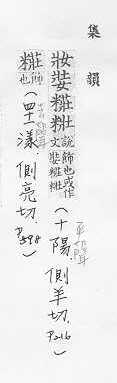 集韻
妝娤糚粧 說飾也或作文娤糚粧(十陽.側羊切.P216)平聲
糚飾也(四十一漾側亮切.P598)